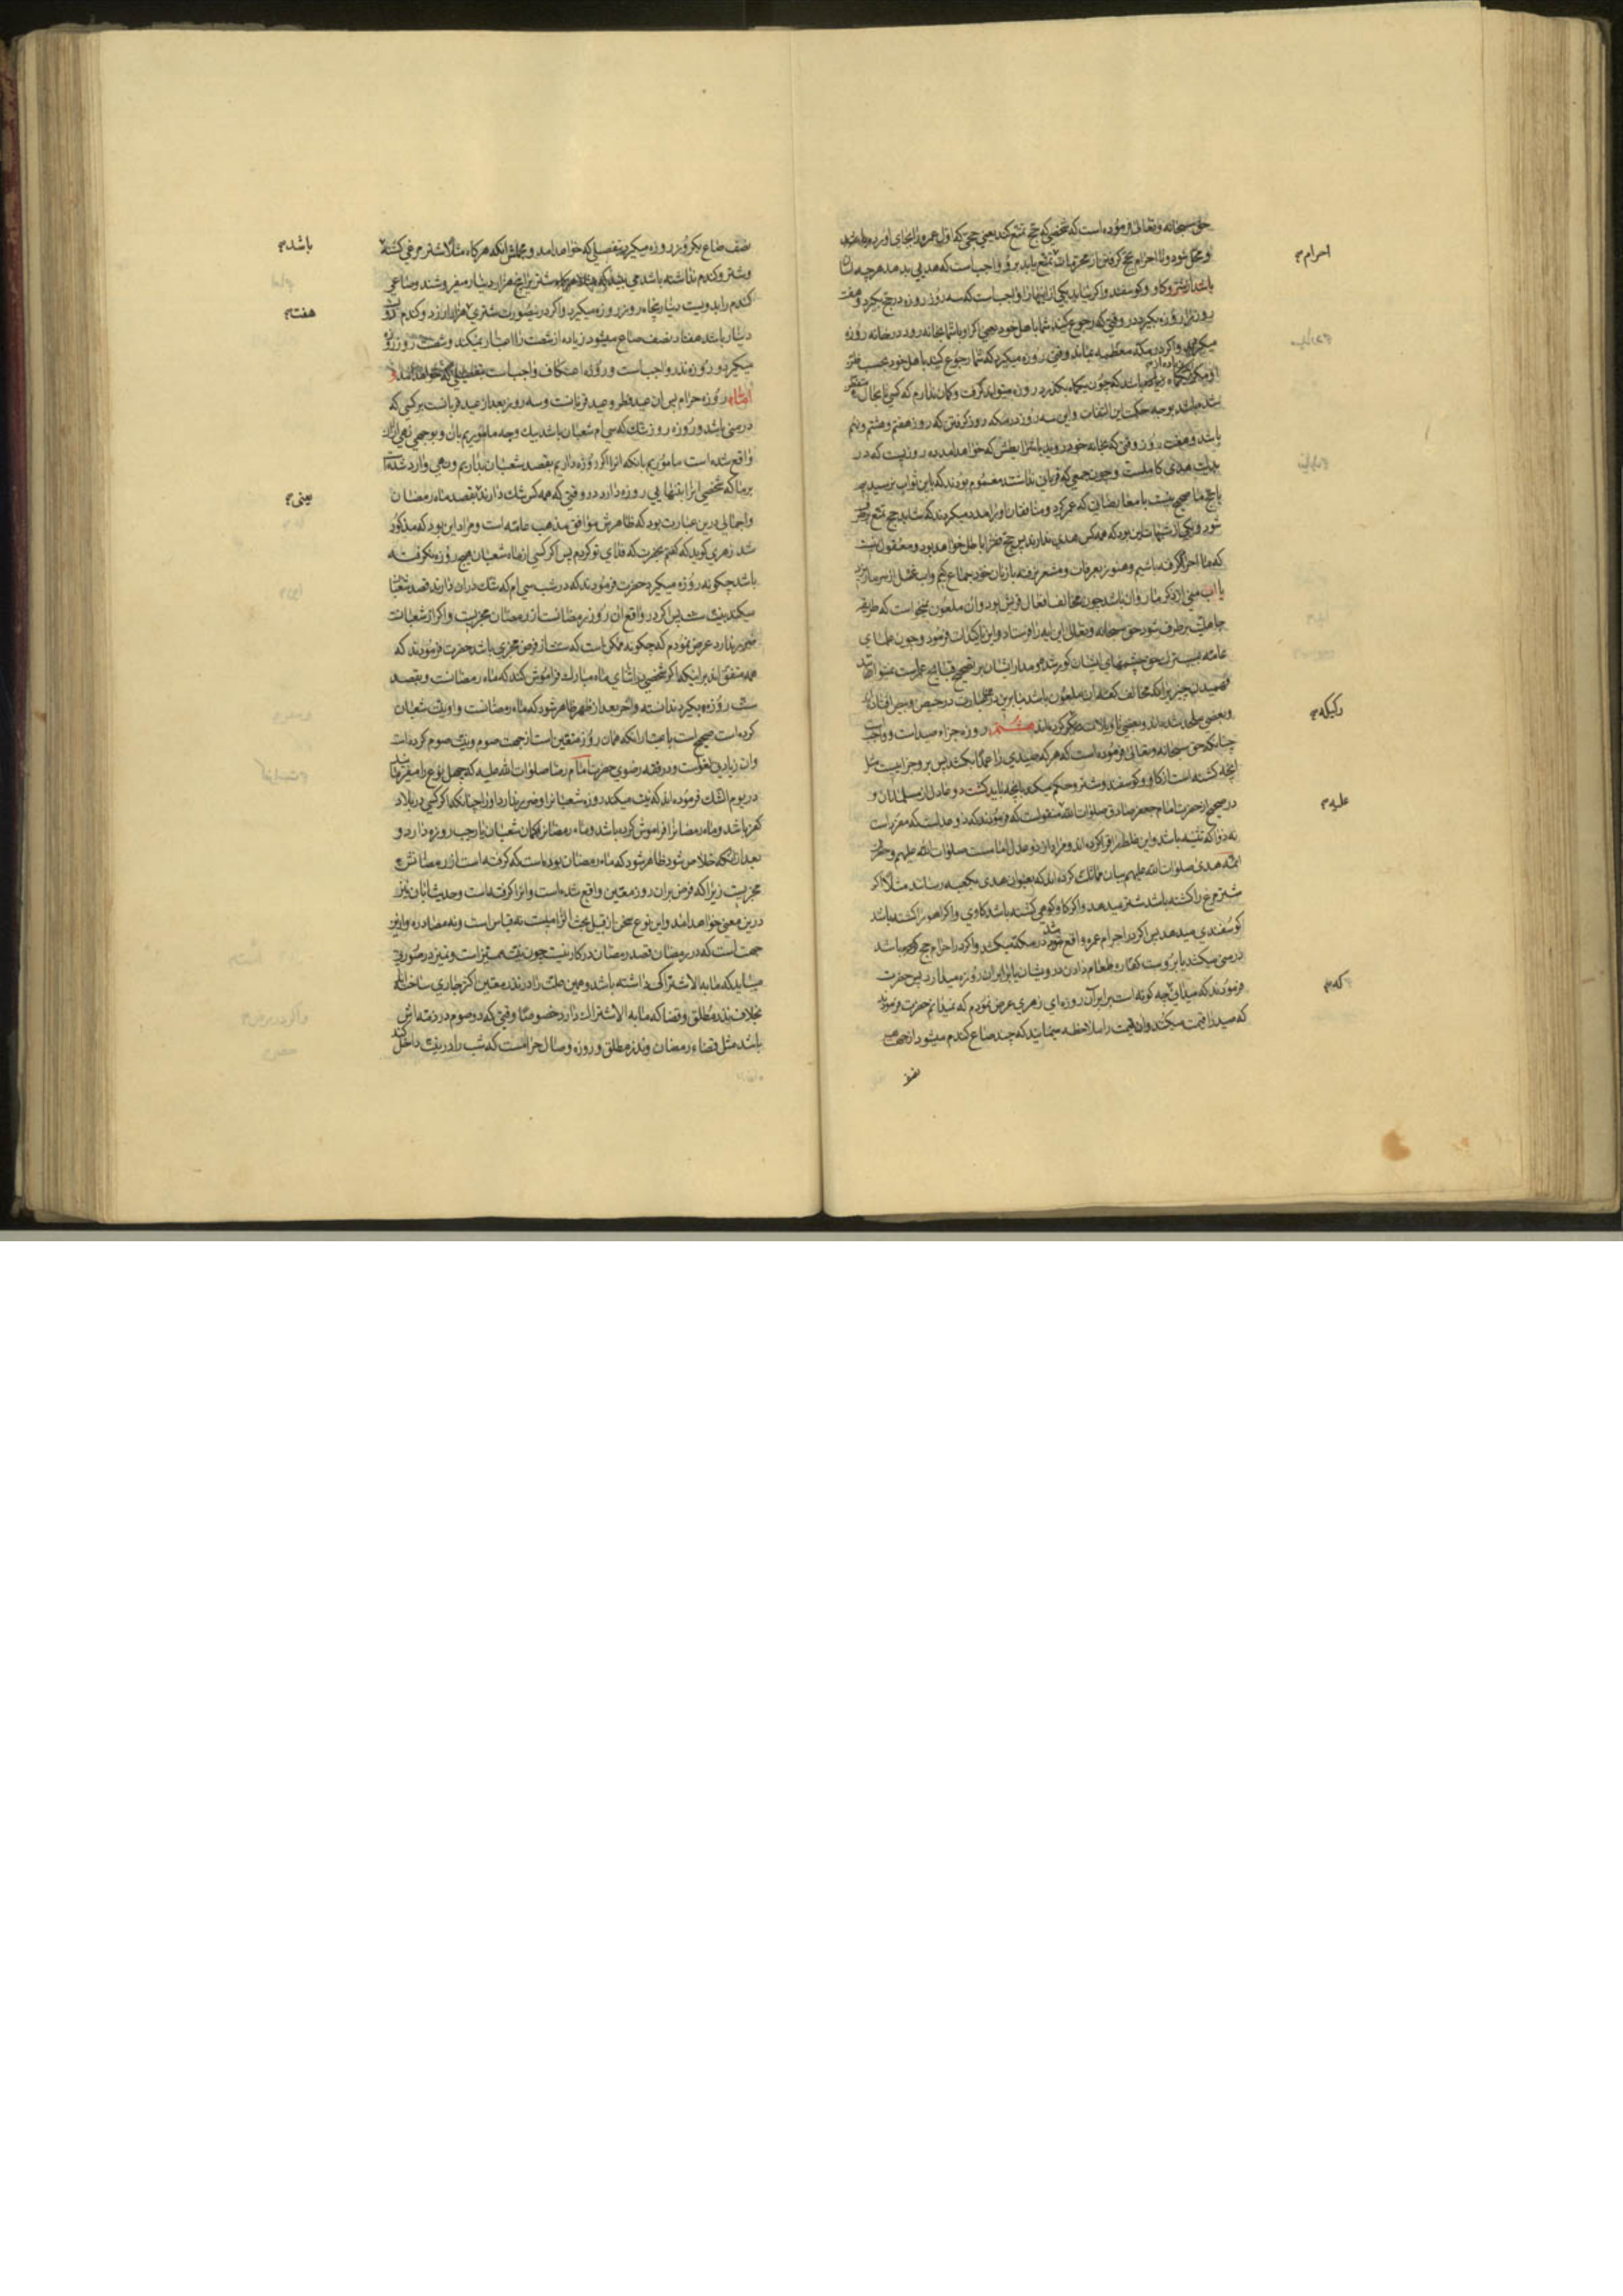 حق سبحانه وتعالی فرموده است که شخصی که حج تمتع کند یعنی حجی که اول عمره را بجای اورد
و محل شود و از احرام حج کرفتن از محرمات تمتع یابد برو واجب است که هدیی بدهد هرچه اسان
باشد از شتر و کاو و کوسفند و اکر نیابد یکی از اینها را واجب است که سه روز روزه در حج بکیرد و هفت
روز را روزه بکیرد در وقتی که رجوع کنید شما باهل خود یعنی که او با شما بخانه رود در خانه روزه
میکیرد و اکر در مکه معظمه بماند وقتی روزه میکیرد که شما رجوع کنید باهل خود
باشد که چون یکماه بکذرد روزه میتواند کرفت و کمان ندارم که کسی تا بحال
شده باشد بوجه حکمت این التفات و این سه روز در مکه روز کرفتن که روز هفتم و هشتم و نهم
باشد و هفت روز وقتی که بخانه خود روید با شرایطش که خواهد امد ده روزیست که در
هدی کاملست و چون جمعی که قربان نداشتند مغموم بودند که باین ثواب نرسیدیم
که ما احرام کرفته باشیم و هنوز بعرفات و مشعر نرفته با زنان خود جماع کنیم و اب غسل از سر ما ریزد
یا اب منی از ذکر ما روان باشد چون مخالف افعال قریش بود و ان ملعون میخواست که طریقه
جاهلیت برطرف نشود حق سبحانه وتعالی این ایه را فرستاد و این تاکیدات فرمود و چون علمای
فهمیدن چیزیرا که مخالف کفته ان ملعون باشد بنابرین درین عبارت در حیص و بیص افتاده اند
و بعضی تاویلات دیکر کرده اند هشتم روزه جزاء صید است و واجب است
چنانکه حق سبحانه وتعالی فرموده است که هر که صیدی را عمدا بکشد پس برو جزاییست مثل
انچه کشته است از کاو و کوسفند و شتر و حکم میکند بانچه باید کشت دو عادل از مسلمانان و
در صحیح از حضرت امام جعفر صادق صلوات الله منقولست که فرمودند که ذو عدلست که مقرر است
نه ذوا که تثنیه باشد و این غلط را قرا کرده اند و مراد از ذو عدل امامست صلوات الله علیهم و حضرت
ائمه هدی صلوات الله علیهم بیان مماثلت کرده اند که بعنوان هدی بکعبه رساند مثلا اکر
شتر مرغ را کشته باشد شتر میدهد و اکر کاو کوهی کشته باشد کاوی و اکر اهو را کشته باشد
کوسفندی میدهد پس اکر در احرام عمره واقع شود در مکه میکشد و اکر در احرام حج باشد
در منی میکشد یا بروست کفاره طعام دادن درویشان یا برابر ان روزه میدارد پس حضرت
فرمودند که میدانی چه کونه است برابر آن روزه ای زهری عرض نمودم که نمیدانم حضرت فرمودند
که صید را قیمت میکنند و ان قیمت را ملاحظه مینمایند که چند صاع کندم میشود از جهت
احرام
رکیکه
علیه
که
نصف صاع یکروز روزه میکیرد بتفصیلی که خواهد امد و مجملش انکه هر کاه مثلا شتر مرغی کشته
کندم را بدویست دینار پنجاه روز روزه میکیرد و اکر درینصورت شتری
دینار باشد هفتاد نصف صاع میشود زیاده از شصت را اعتبار نمیکند و شصت روز روزه
میکیرد و روزه نذر واجب است و روزه اعتکاف واجب است بتفصیلی که خواهد امد و
اما روزه حرام پس ان عید فطر و عید قربانست و سه روز بعد از عید قربانست بر کسی که
در منی باشد و روزه روز شک که سی ام شعبان باشد بیک وجه ماموریم بان و بوجهی نهی از ان
واقع شده است ماموریم بانکه انرا اکر روزه داریم بقصد شعبان بداریم و نهی وارد شده است
برما که شخصی انرا بتنهایی روزه دارد در وقتی که همه کس شک دارند بقصد ماه رمضان
و اجمالی درین عبارت بود که ظاهرش موافق مذهب عامه است و مراد این بود که مذکور
شد زهری کوید که کفتم بحضرت که فدای تو کردم پس اکر کسی از ماه شعبان هیچ روزه نکرفته
باشد چکونه روزه میکیرد حضرت فرمودند که در شب سی ام که شک دران دارند قصد شعبان
میکند بنیت سنت پس اکر در واقع ان روز رمضانست از رمضان مجزیست و اکر از شعبانست
ضرر ندارد عرض نمودم که چکونه ممکن است که سنت از فرض مجزی باشد حضرت فرمودند که
همه متفق اند بر اینکه اکر شخصی در اثنای ماه مبارک فراموش کند که ماه رمضانست و بقصد
سنت روزه بکیرد ندانسته و اخر بعد از ظهر ظاهر شود که ماه رمضانست و او نیت شعبان
کرده است صحیح است باعتبار انکه همان روز متعین است از جهت صوم و نیت صوم کرده است
وان زیادتی لغو است و در فقه رضوی حضرت امام رضا صلوات الله علیه که جهل نوع را میفرماید
در یوم الشک فرموده اند که نیت میکند روزه شعبانرا و ضرر ندارد اورا چنانکه اکر کسی در بلاد
کفر باشد و ماه رمضانرا فراموش کرده باشد و ماه رمضانرا بکمان شعبان یا رجب روزه دارد و
بعد از انکه خلاص شود ظاهر شود که ماه رمضان بوده است که کرفته است از رمضانش
مجزیست زیرا که فرض بران روز معین واقع شده است و انرا کرفته است و حدیثشان نیز
درین معنی خواهد امد و این نوع سخن از قبیل بحث الزامیست نه قیاس است و نه مصادره و از این
جهت است که در رمضان قصد رمضان در کار نیست چون نیت ممیز است و تمیز در صورتی
میباید که ما به الاشتراکی داشته باشد و همین علت را در نذر معین اکثر جاری ساخته اند
بخلاف نذر مطلق و قضا که ما به الاشتراک دارد خصوصا وقتی که دو صوم در ذمه اش
باشد مثل قضاء رمضان و نذر مطلق و روزه وصال حرامست که شب را در نیت داخل کند
باشد
هفت
یعنی